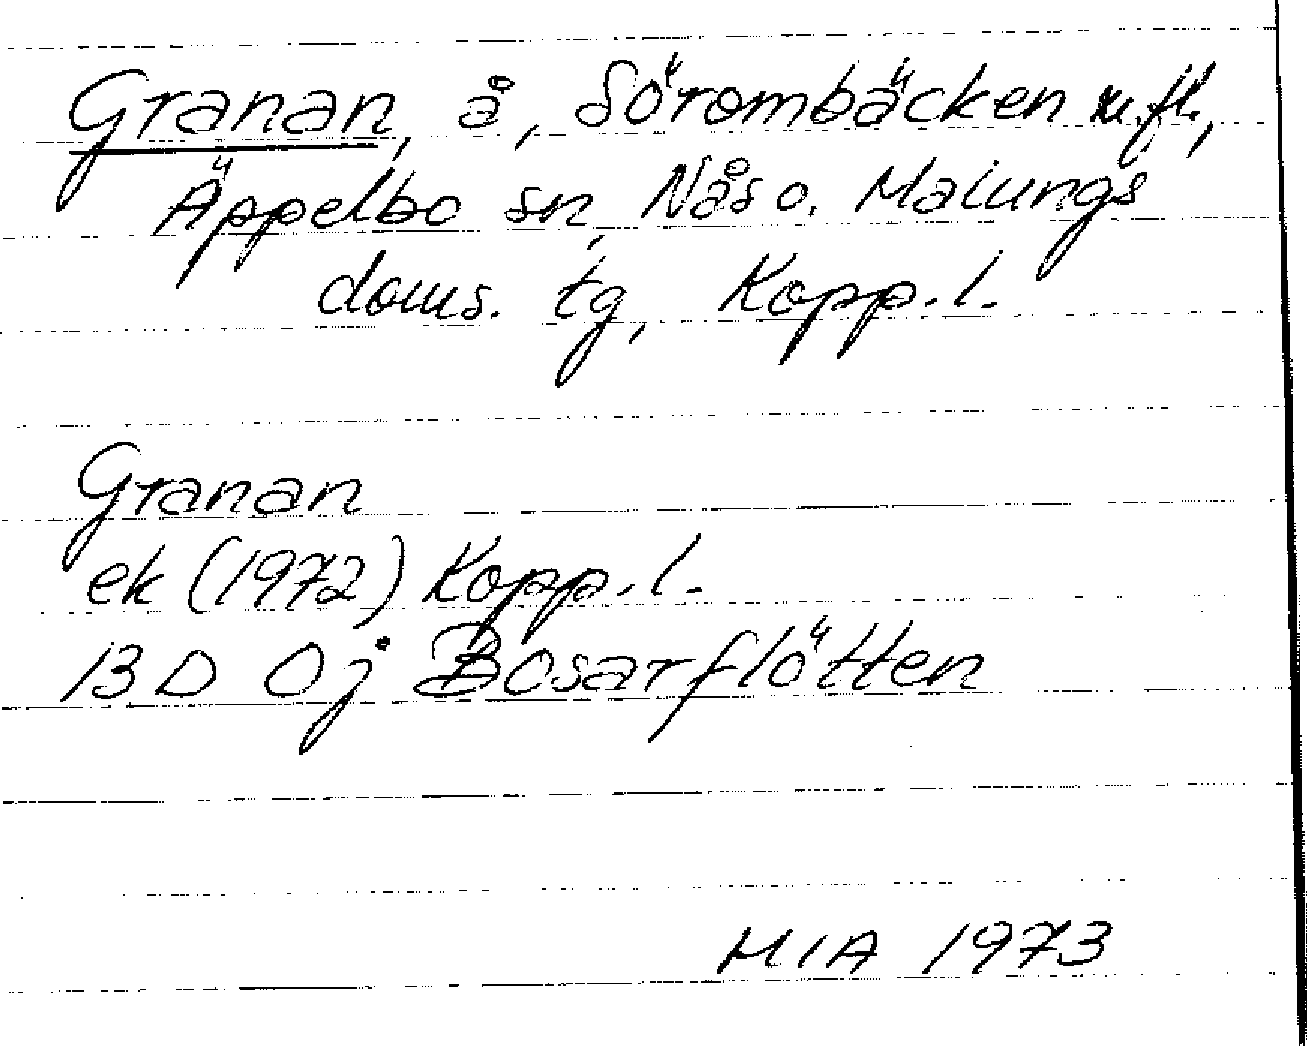 Granan, å, Sörombäcken m.fl.,
Äppelbo sn, Nås o. Malungs
doms. tg, Kopp.l.
Granan
ek (1972) Kopp.l.
13D 0j Bosarflötten
MIA 1973